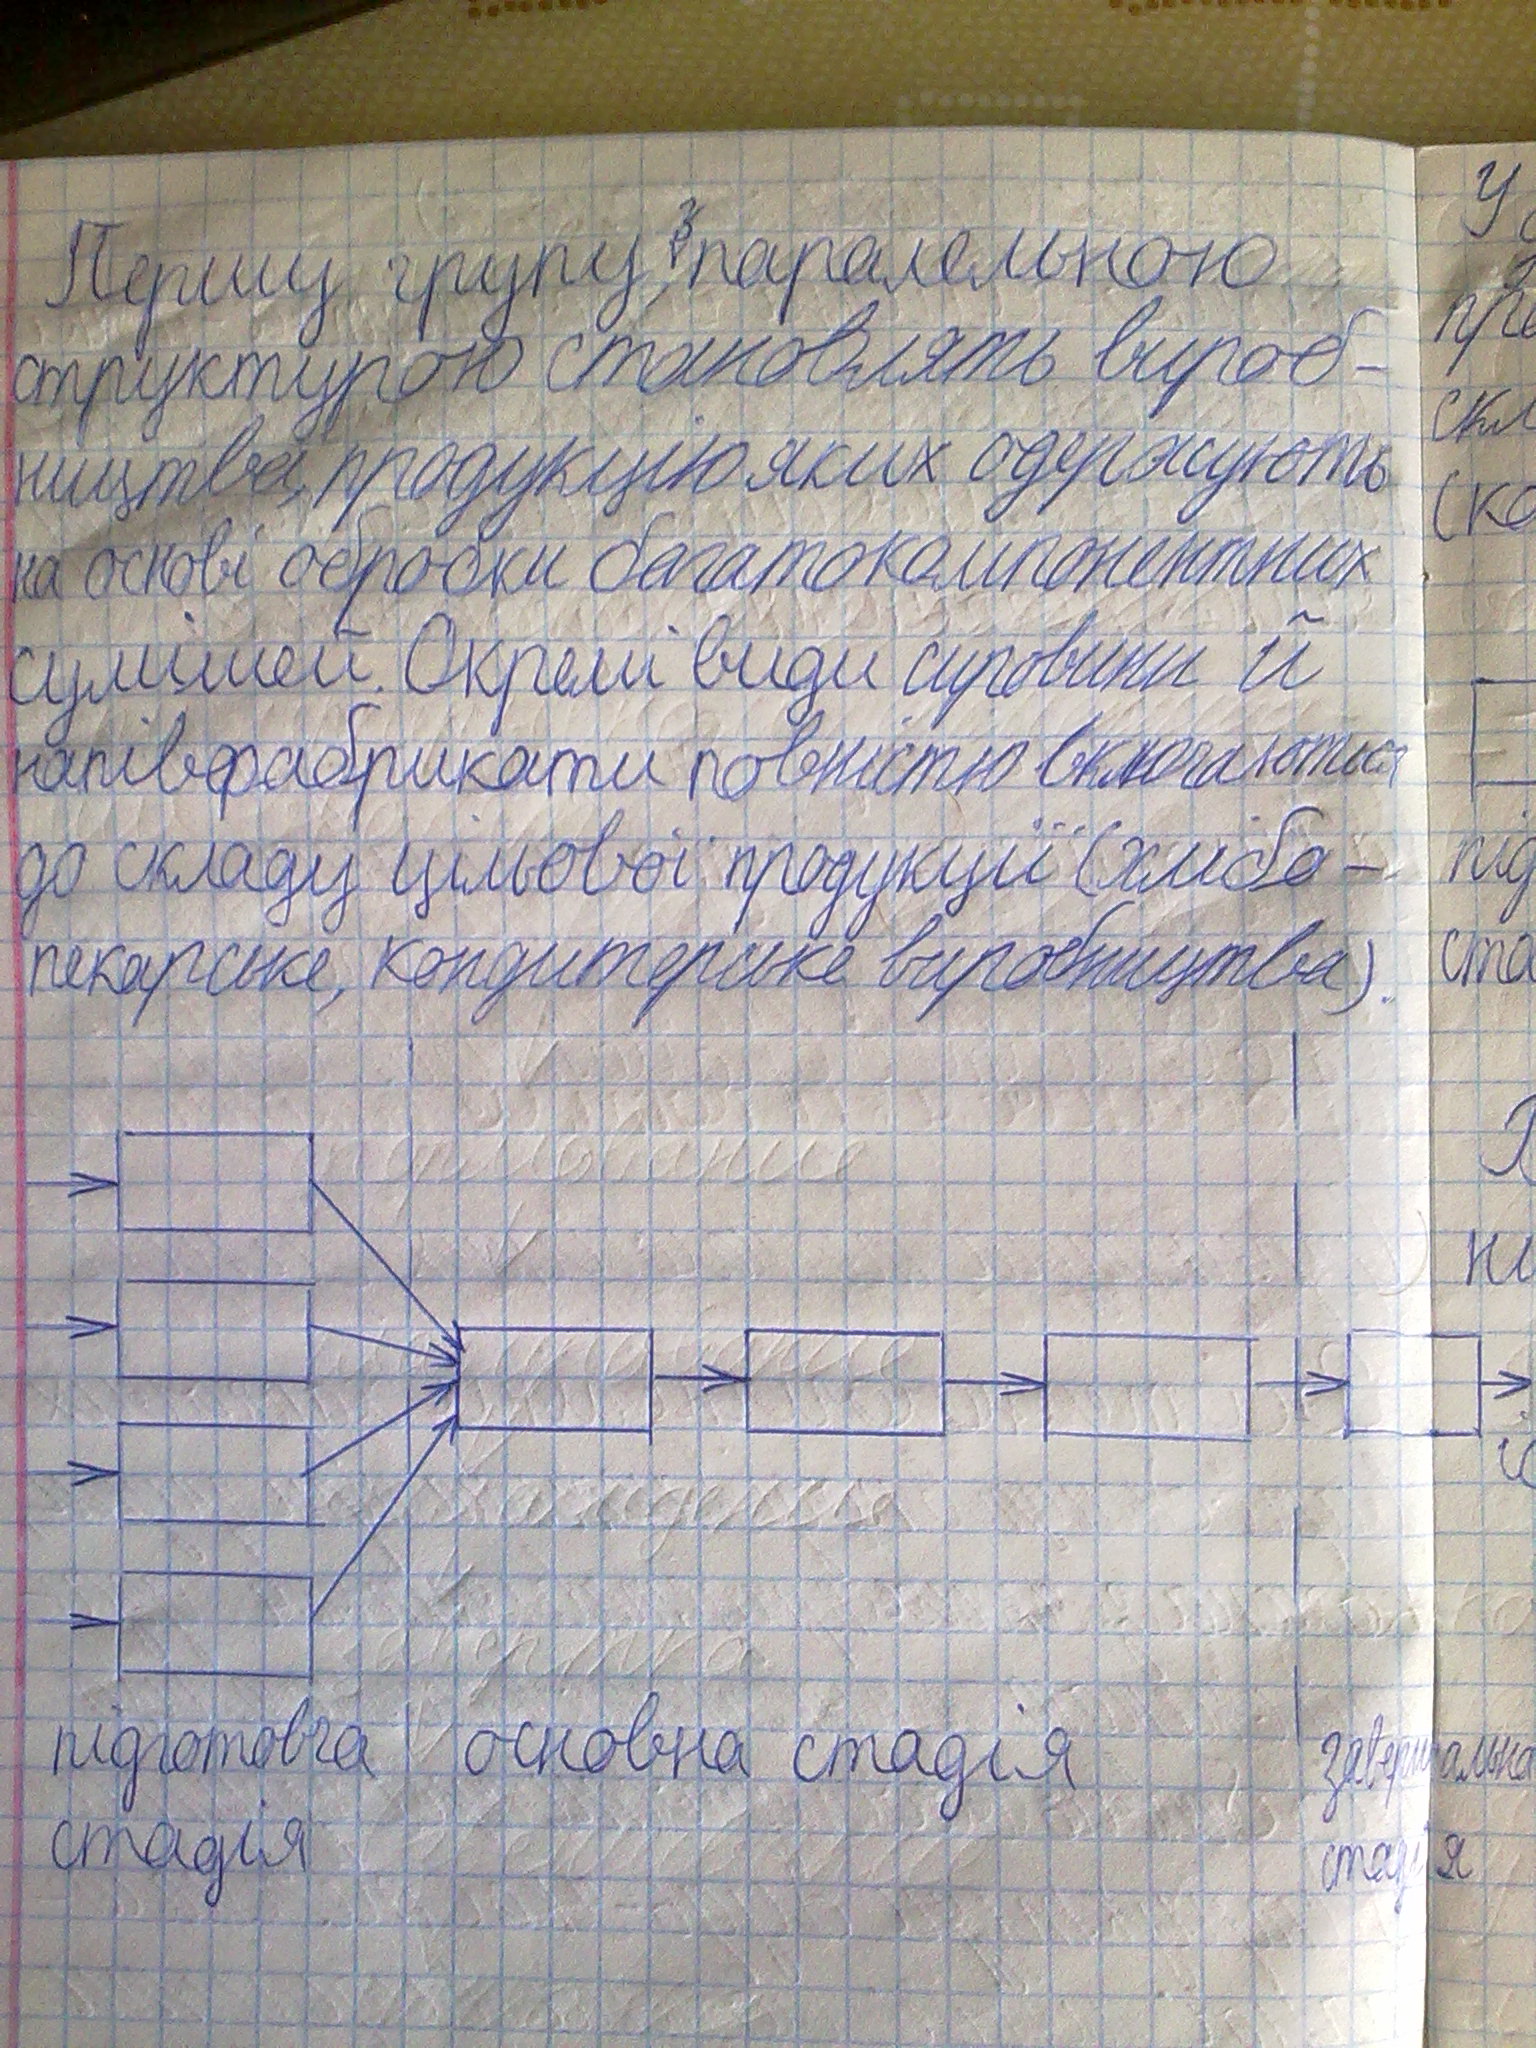 Першу групу з паралельною
структурою становлять вироб-
ництва, продукцію яких одержують
на основі обробки багатокомпонентних
сумішей. Окремі види сировини й
напівфабрикати повністю включаються
до складу цільової продукції (хлібо-
пекарське, кондитерське виробництва).
підготовча
стадія
основна стадія
завершальна
стадія
У
скл
(ко
під
ста